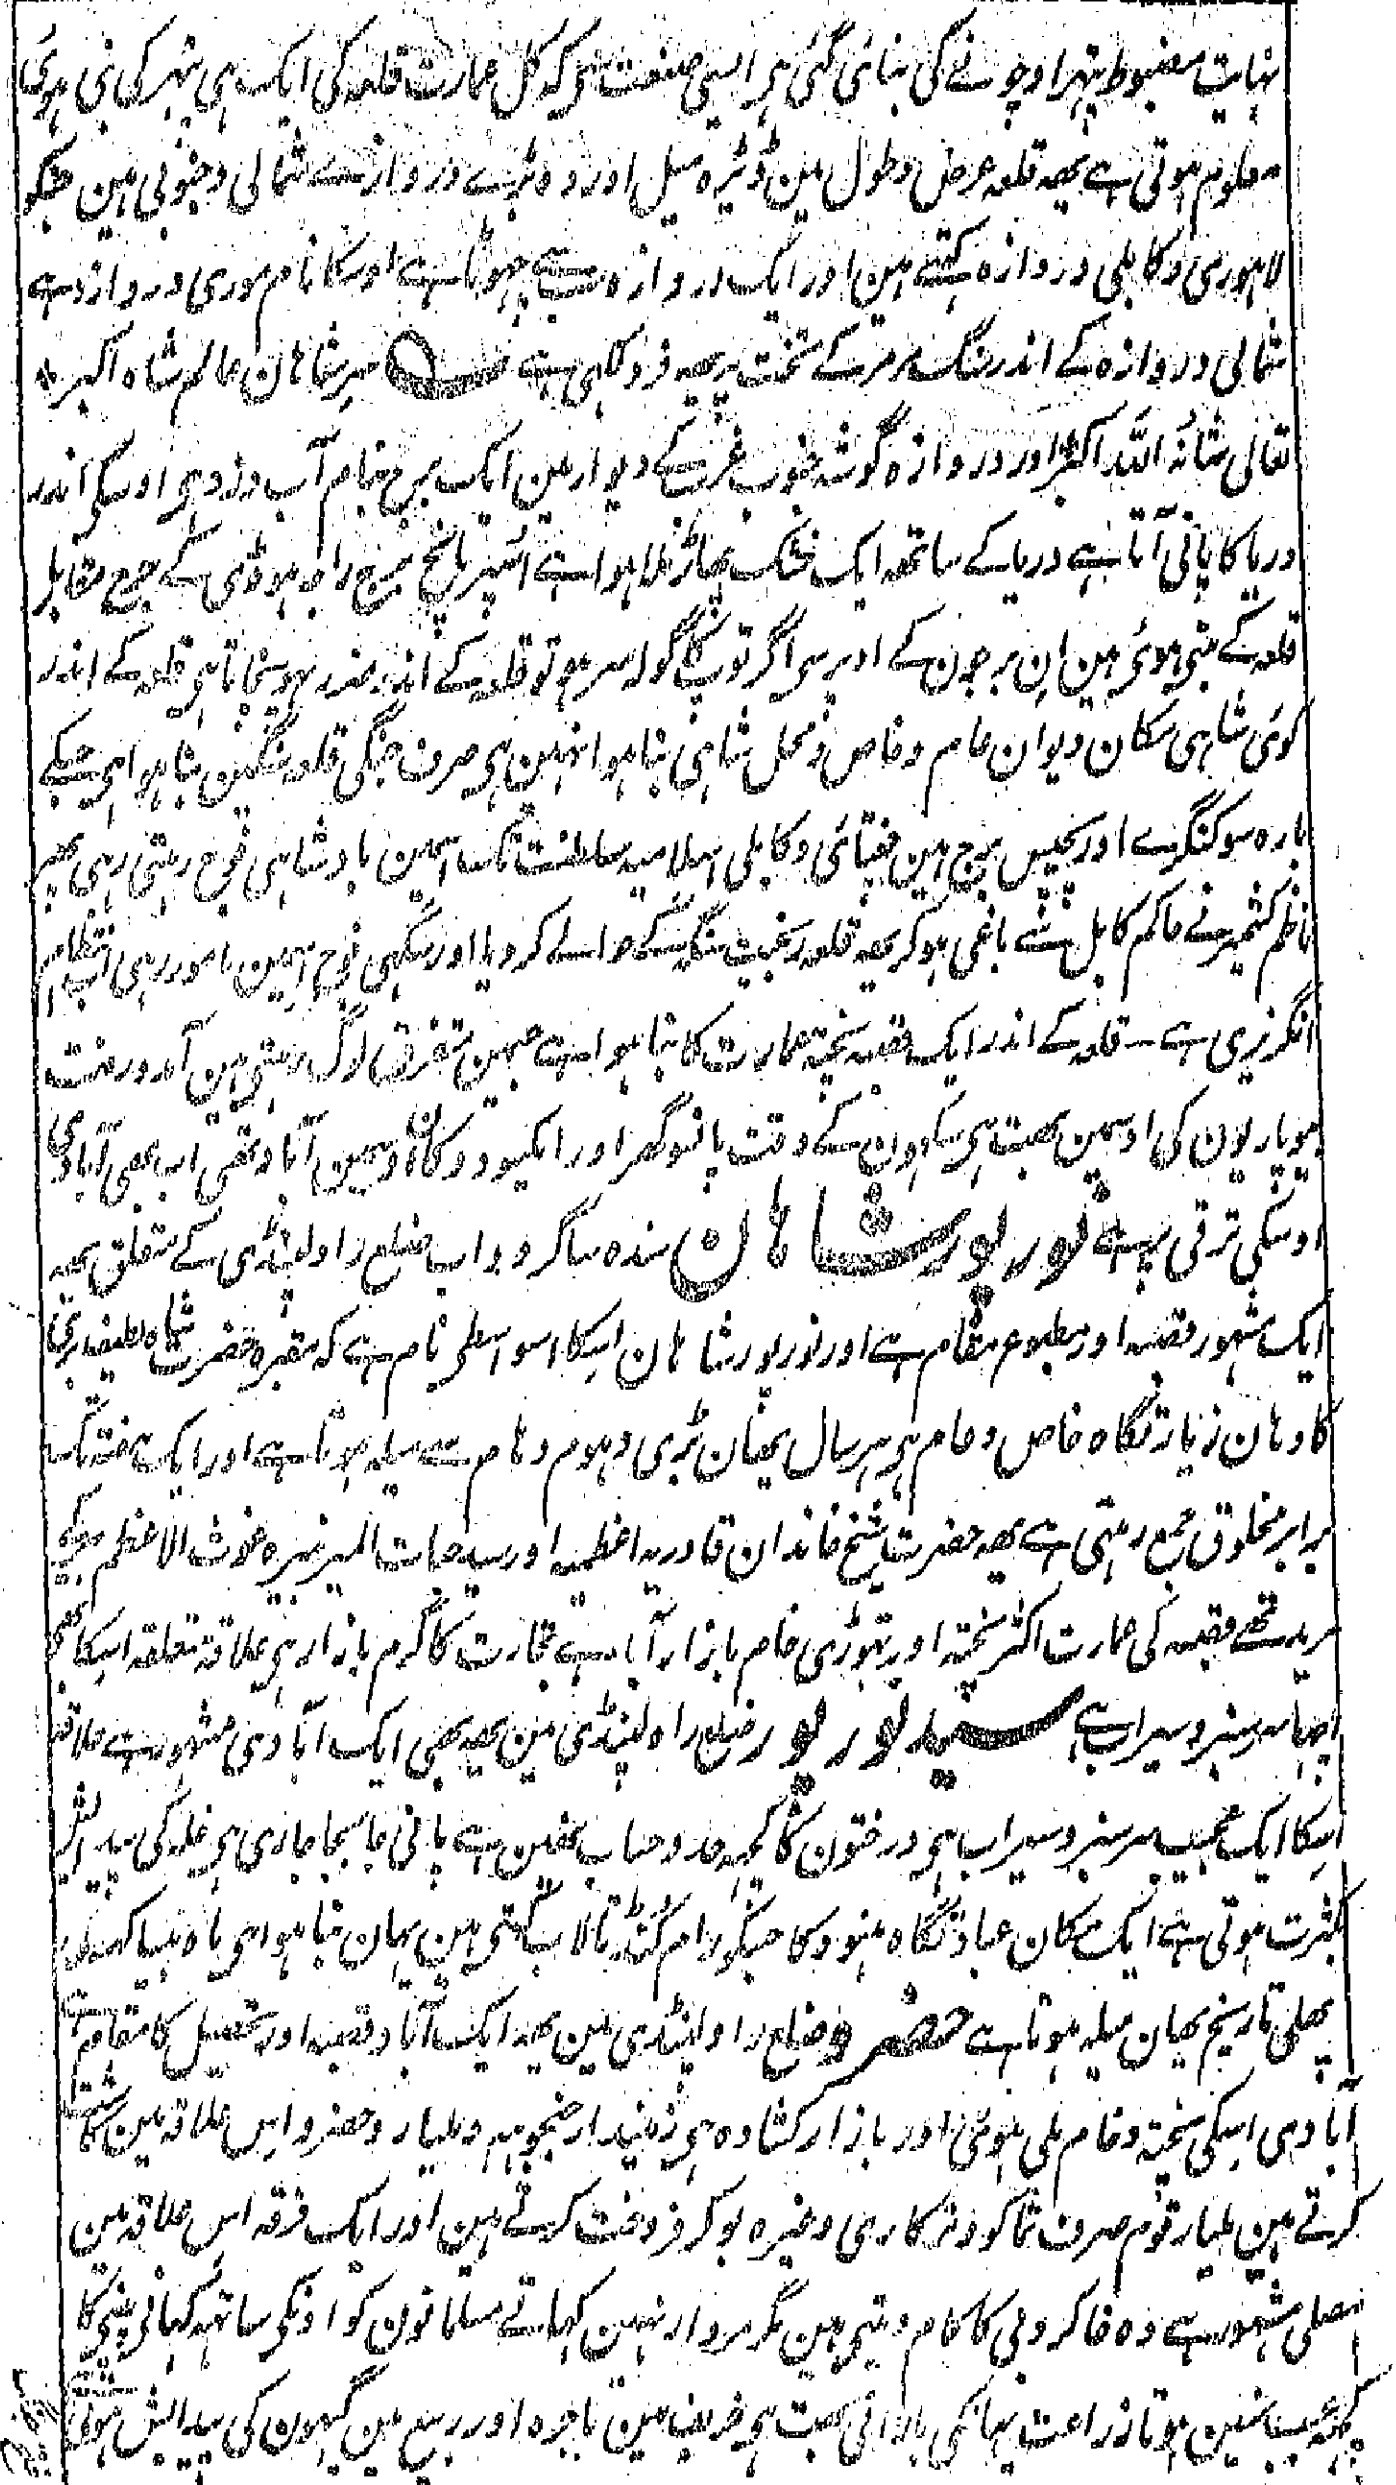 نہایت مضبوط پتہر اور چونے کی بنائی گئی ہی ایسی صنعت سی کہ کل عمارت قلعہ کی ایک ہی پتہر کی بنی ہوئی
معلوم ہوتی ہے یہہ قلعہ عرض و طول مین ڈیڑہ میل اور دو بڑے دروازے شمالی و جنوبی ہین جنکو
لاہوری و کابلی دروازہ کہتے ہین اور ایک دروازہ سب سے چہوٹا ہے اوسکا نام موری دروازہ ہے
شمالی دروازہ کے اندر سنگ مرمر کے تخت پر یہہ فرد لکہی ہے سرِ شاہان عالم شاہ اکبر
تعالی شانہٗ اللہ اکبر اور دروازہ گوشہ جنوب غرب کے دیوار مین ایک برج بنام آب دزد ہی اوسکی اندر
دریا کا پانی آتا ہے دریا کے ساتھہ ایک خشک پہاڑ ملا ہوا ہے اسپر پانچ برج راجہ ہوڈی کے مقابل
قلعہ کے بنی ہوئی ہین ان برجون کے اوپر سی اگر توپ کا گولہ سر ہو تو قلعہ کے اندر ضرر پہونچاتا ہی قلعہ کے اندر
کوئی شاہی مکان دیوان عام و خاص و محل شاہی بنا ہوا نہین ہی صرف جنگی قلعہ سنگین بنا ہوا ہی جسکے
بارہ سو کنگرے اور پچیس برج ہین چغتائی و کابلی اسلامیہ سلطنت تک اسمین بادشاہی فوج رہتی رہی پہر
ناظم کشمیر نے حاکم کابل سے باغی ہوکر یہہ قلعہ رنجیت سنگہ کے حوالے کر دیا اور سکہی فوج اسمین مامور رہی اب انتظام
انگریزی ہے ۔ قلعہ کے اندر ایک قصبہ پختہ عمارت کا بنا ہوا ہے جسمین متفرق لوگ رہتی ہین آمد و رفت
بیوپاریون کی اوسمین بہت ہی سکہون کے وقت پانسو گہر اور ایکسو دوکان اوسمین آباد تہی اب بھی آبادی
اوسکی ترقی پر ہے نور پور شاہان سندہ ساگر دوآب ضلع راولپنڈی کے متعلق یہہ
ایک مشہور قصبہ اور مطبوع مقام ہے اور نورپور شاہان اسکا اسواسطی نام ہے کہ مقبرہ حضرت شاہ لطیف بری
کا وہان زیارتگاہ خاص و عام ہی ہر سال یہان بڑی دہوم دہام سے میلہ ہوتا ہے اور ایک ہفتہ تک
برابر مخلوق جمع رہتی ہے یہہ حضرت شیخ خاندان قادریہ اعظمیہ اور سید حیات المیر نبیرہ غوث الاعظم کے
مرید تہے قصبہ کی عمارت اکثر پختہ اور تہوڑی خام بازار آباد ہے تجارت کا گرم بازار ہی علاقہ متعلقہ اسکا بھی
اچہا سرسبز و سیراب ہے سید نور پور ضلع راولپنڈی مین یہہ بھی ایک آبادی مشہور ہے علاقہ
اسکا ایک عجیب سرسبز و سیراب ہی درختون کا کچہ حد و حساب نہین ہے پانی جا بجا جاری ہی غلہ کی پیدایش
بکثرت ہوتی ہے ایک مکان عبادتگاہ ہنود کا جسکو رام کنڈ تالاب کہتی ہین یہان بنا ہوا ہی ماہ بیساکہہ کی
پہلی تاریخ یہان میلہ ہوتا ہے حضرو ضلع راولپنڈی مین یہہ ایک آباد قصبہ اور تحصیل کا مقام ہے
آبادی اسکی پختہ و خام ملی ہوئی اور بازار کشادہ ہی زمیندار جنجوہہ و ملیار و حضرو اس علاقہ مین کاشت
کرتے ہین ملیار قوم صرف تماکو و ترکاری وغیرہ بو کر فروخت کرتے ہین اور ایک فرقہ اس علاقہ مین
مصلی مشہور ہے وہ خاکروبی کا کام دیتی ہین مگر مردار نہین کہاتے مسلمانون کو اونکی ساتہہ کہانی پینی کا
کچہ عیب نہین ہوتا زراعت یہانکی بارانی بہت ہی خریف مین باجرہ اور ربیع مین گیہون کی پیدایش ہوتی